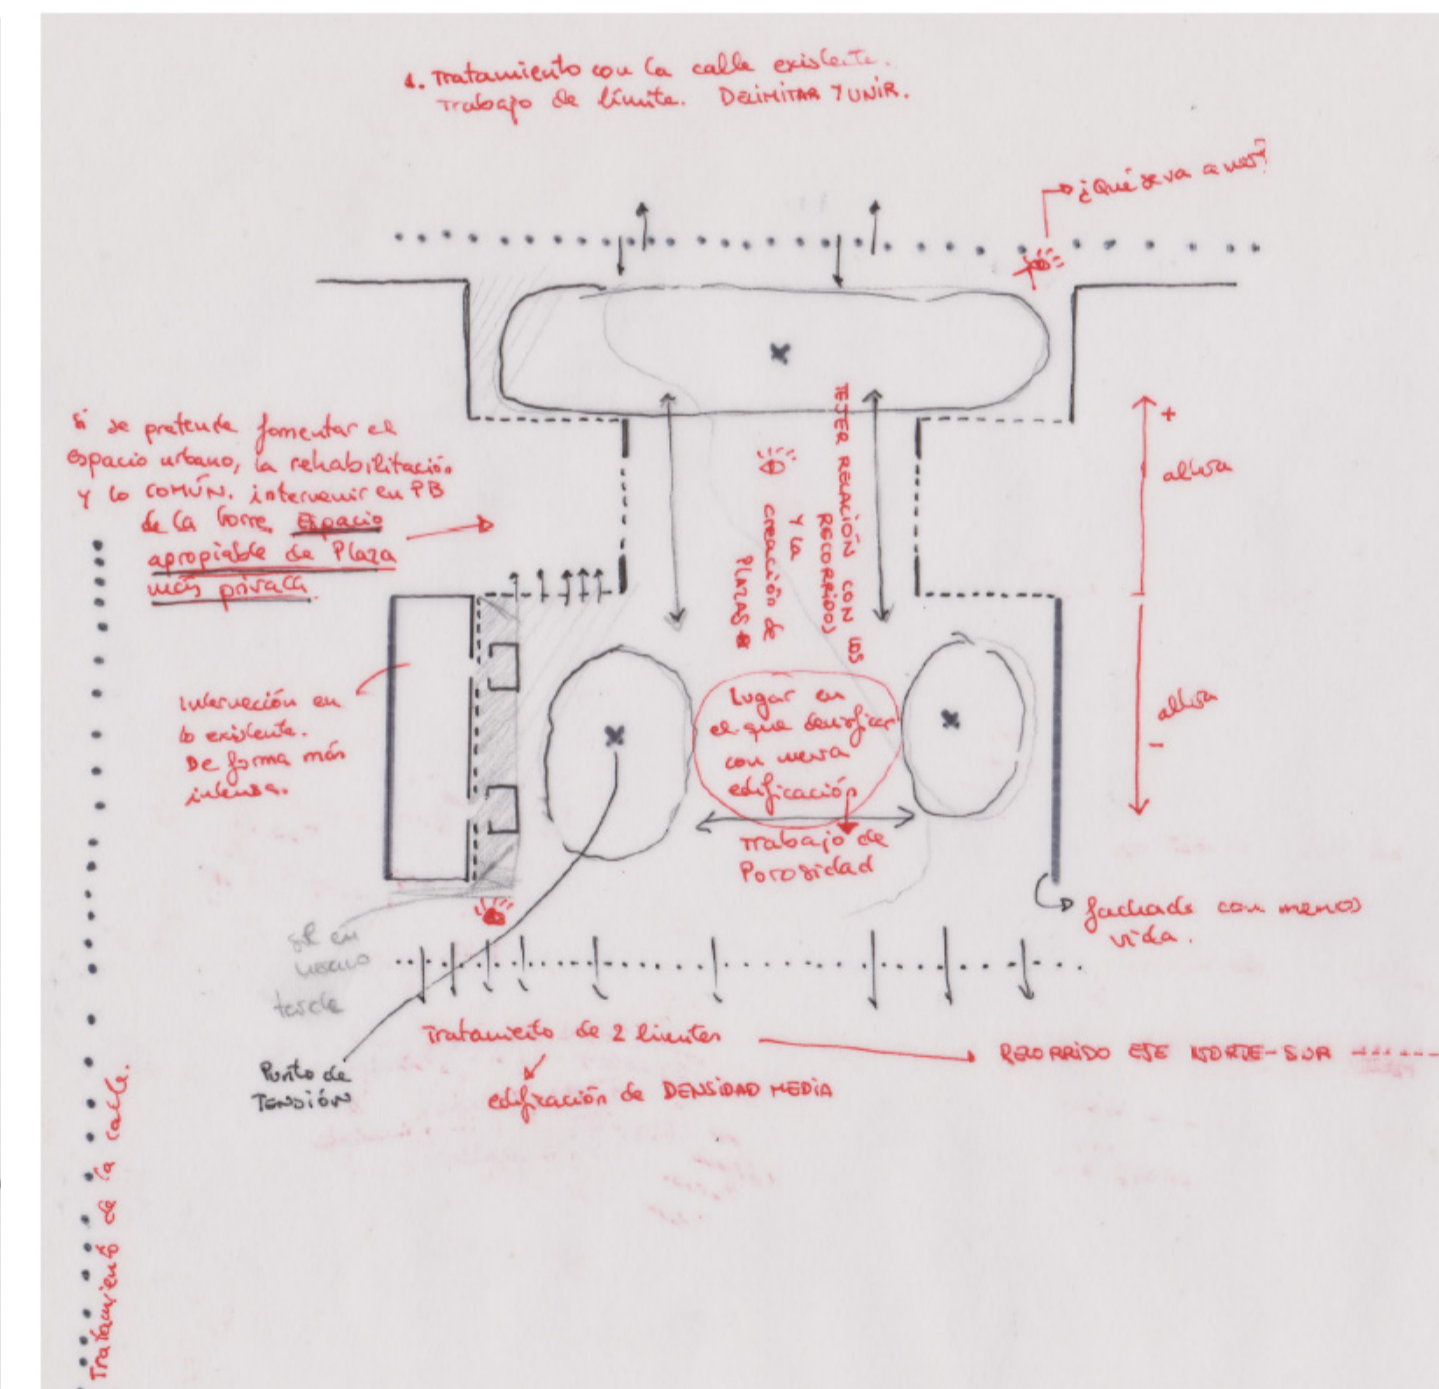 1. Tratamiento con la calle existente.
Trabajo de límite. DELIMITAR Y UNIR.
¿Qué se va a ver?
Si se pretende fomentar el
espacio urbano, la rehabilitación
y lo COMÚN. intervenir en PB
de la torre. Espacio
apropiable de Plaza
más privada.
TEJER RELACIÓN CON LOS
RECORRIDOS
Y la
creación de
PLAZAS
+
altura
altura
-
Intervención en
lo existente.
De forma más
intensa.
Lugar en
el que densificar
con nueva
edificación
Trabajo de
Porosidad
fachada con menos
vida.
sol en
verano
tarde
Punto de
TENSIÓN
Tratamiento de 2 límites
edificación de DENSIDAD MEDIA
RECORRIDO ESTE NORTE-SUR
Tratamiento de la calle.